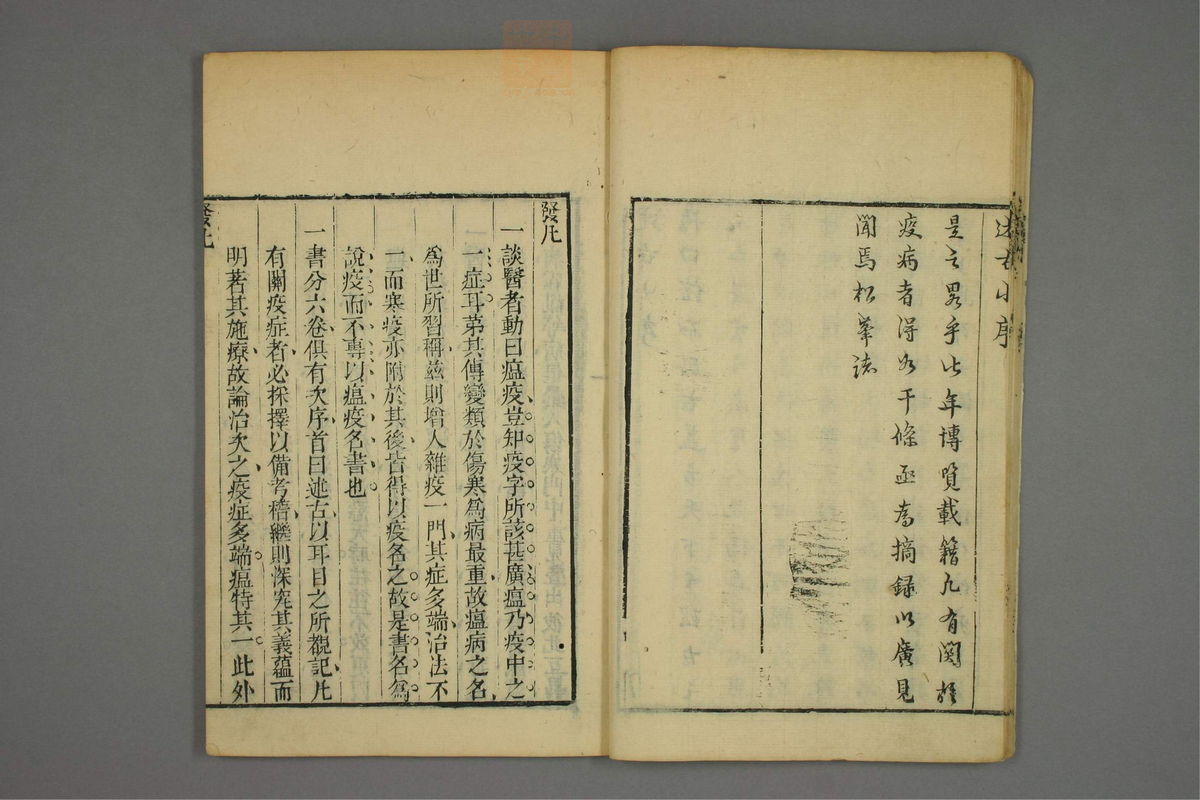 述古小序
是之畧乎比年博覽載籍凡有關於
疫病者得如干條亟為摘録以廣見
聞焉松峯誌
發凡
一談醫者動曰瘟疫豈知疫字所該甚廣瘟乃疫中之
一症耳第其傳變類於傷寒為病最重故瘟病之名
為世所習稱兹則增入雜疫一門其症多端治法不
一而寒疫亦附於其後皆得以疫名之故是書名為
說疫而不專以瘟疫名書也
一書分六卷俱有次序首曰述古以耳目之所覩記凡
有關疫症者必採擇以備考稽繼則深究其義蘊而
明著其施療故論治次之疫症多端瘟特其一此外
發凡